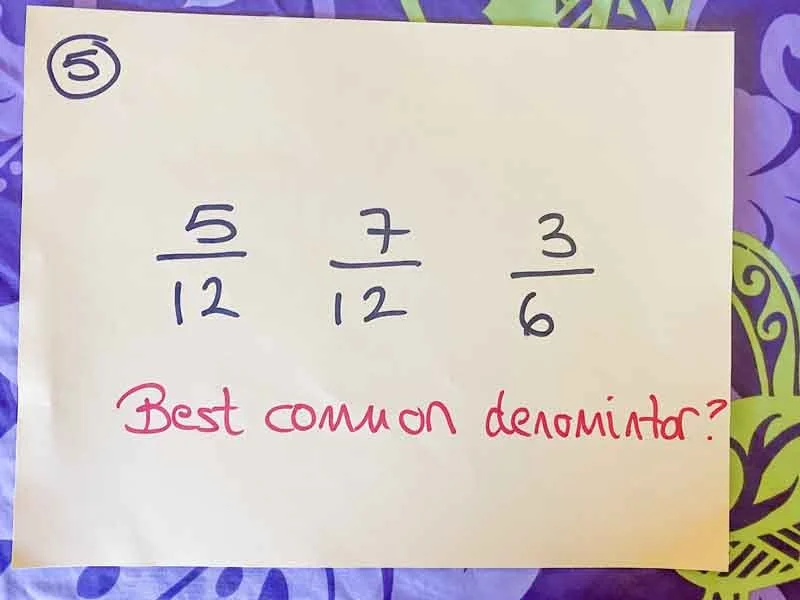 5
5 7 3
12 12 6
Best common denomintor?